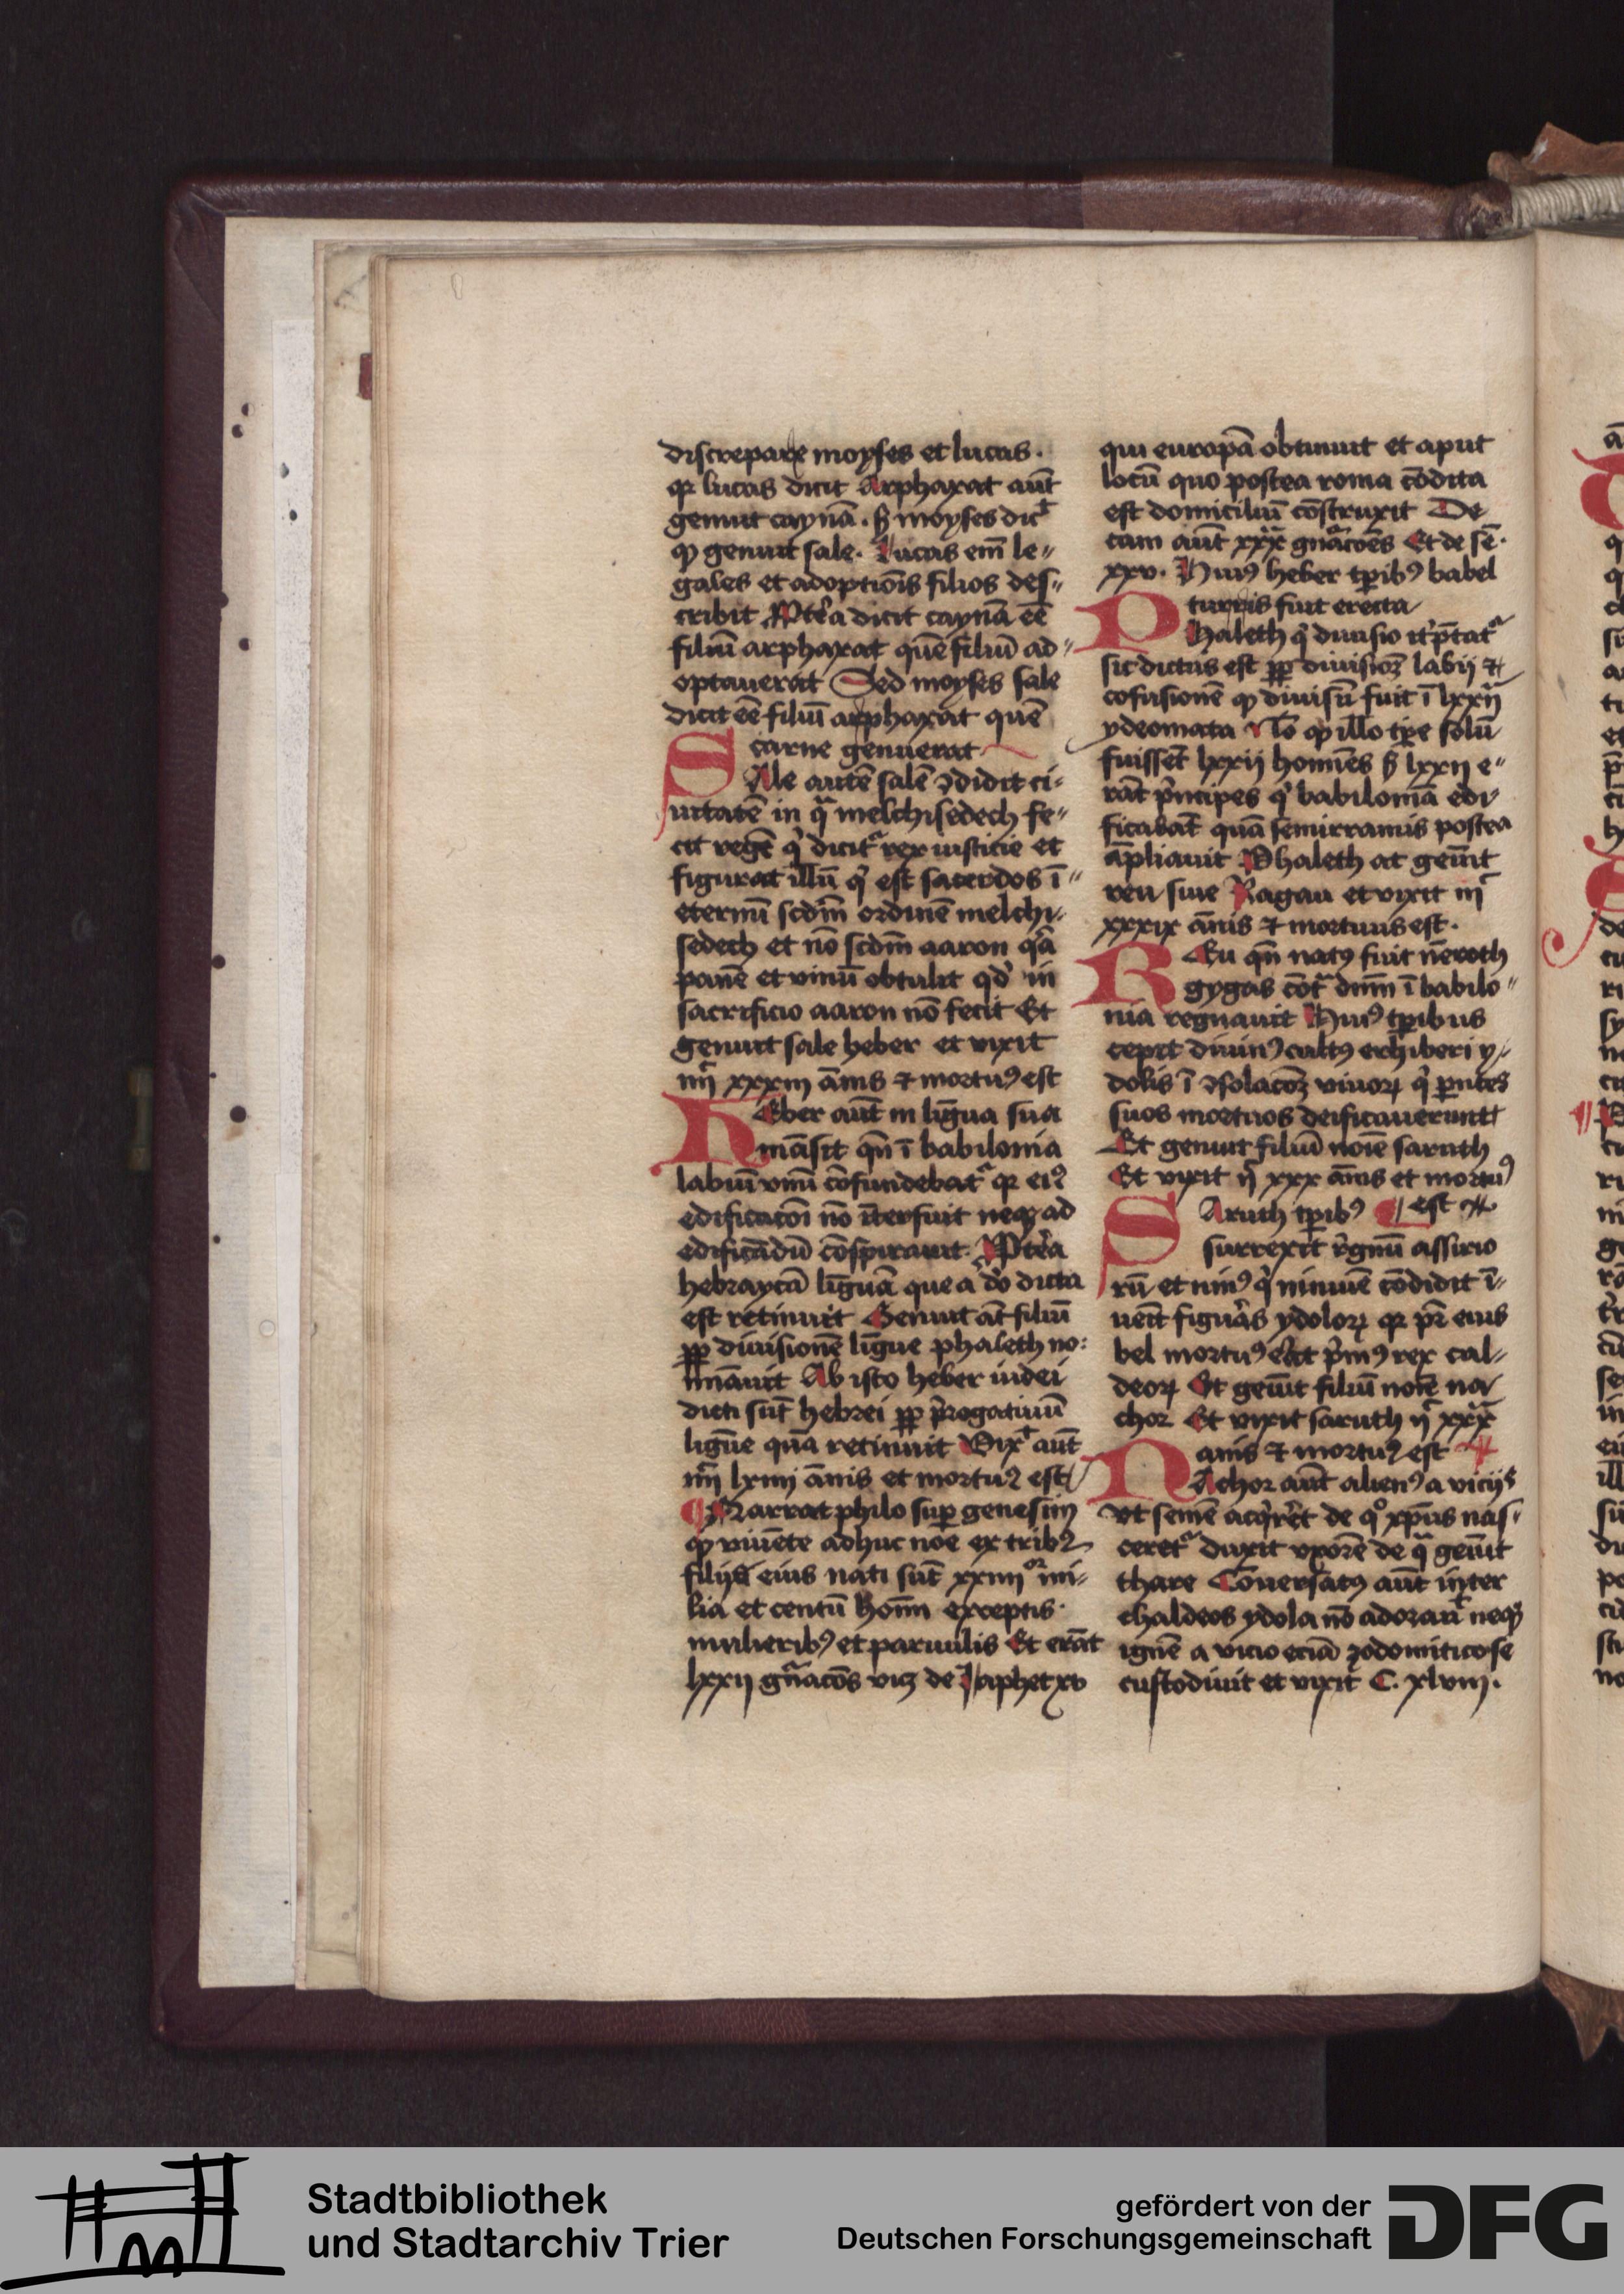 discrepare moyses et lucas.
qꝛ lucas dicit Arphaxat aut̄
genuit caynā. sꝫ moyses dic̄
ꝙ genuit sale. Lucas em̄ le〃
gales et adoptiōis filios des〃
cribit Pte᷑a dicit caynā eē
filiū arphaxat quē filiū ad〃
optauerat Sed moyses sale
dicit eē filiū arphaxat quē
carne genuerat
SAle autē salē ꝯdidit ci-
uitatē in qͣ melchisedech fe〃
cit regē qͥ dicitᷣ rex iusticie et
figurat illū qͥ est sacerdos ī〃
eternū scdm̄ ordinē melchi-
sedech et nō scdm̄ aaron qͥa
panē et vinū obtulit qd' in
sacrificio aaron nō fecit Et
genuit sale heber et vixit
iiijͨ xxxiii ānis ⁊ mortuꝰ est
HEber aut̄ in līgua sua
māsit qn̄ ī babilonia
labiū vnū cōfundebatᷣ qꝛ eiꝰ
edificacōi nō īterfuit neqꝫ ad
edificādū cōspirauit. Pte᷑a
hebraycā līguā que a do dicta
est retinuit Genuit āt filiū
ꝓpt̄ diuisionē līgue phaleth no:
mīauit Ab isto heber iudei
dicti sūt hebrei ꝓpt̄ p̄rogatiuū
ligūe quā retinuit Vixᵗ aut̄
iiijͨ lxiiij ānis et mortuꝰ est
¶ Narrat philo suꝑ genesim
ꝙ viuēte adhuc noe ex tribꝰ
filijs eius nati sūt xxiiijᵒʳ mi-
lia et centū homī exceptis
mulieribꝰ et paruulis Et erāt
lxxij gn̄acōs viꝫ de Japhet xv
qui europā obtinuit et aput
locū quo postea roma cōdita
est domiciliū cōstruxit De
cam aut̄ xxx gn̄acōes Et de sē.
xxv. Huiꝰ heber tꝑibꝰ babel
turris fuit erecta
PHaleth qͥ diuisio īt̄p̄tatᷣ
sic dictus est ꝓpt̄ diuisiōꝫ labij ⁊
cōfusionē ꝙ diuisū fuit ī lxxij
ydeomata Nō ꝙ illo tꝑe solū
fuissēt lxxij homīes sꝫ lxxij e〃
rāt pͥncipes qͥ babiloniā edi-
ficabāt quā semirramis postea
āpliauit Phaleth at genͥit
reu siue Ragau et vixit iijͨ
xxxix ānis ⁊ mortuus est.
REu qn̄ natꝰ fuit nēroth
gygas cōtͣ dn̄m ī babilo〃
nia regnauit Huiꝰ tꝑibus
cepit diuinꝰ cultꝰ exhiberi y-
dolis ī ꝯsolacōꝫ viuoꝝ qͥ pn̄tes
suos mortuos deificauerunt
Et genuit filiū noīe saruth
Et vixit ijͨ xxx ānis et mortuꝰ
¶ est
SAruth tꝑibꝰ
surrexit rͤgnū assirio
rū et ninꝰ qͥ niniuē cōdidit ī-
uēit figuͬas ydoloꝝ qꝛ pr̄ eius
bel mortuꝰ erat pͥmꝰ rex cal-
deoꝝ Et genͥit filiū noīe na-
chor Et vixit saruth ijͨ xxx
anis ⁊ mortuꝰ est
NAchor aut̄ alienꝰ a vicijs
vt semē acqͥre̅t de qͦ xp̄us nas-
ceretᷣ duxit vxorē de qͣ genͥit
thare Cōuersatꝰ aut̄ inter
chaldeos ydola nō adorauͭ neqꝫ
ignē a vicio eciā zodomitico se
custodiuit et vixit C. xlviij.
Stadtbibliothek
und Stadtarchiv Trier
gefördert von der
Deutschen Forschungsgemeinschaft
DFG